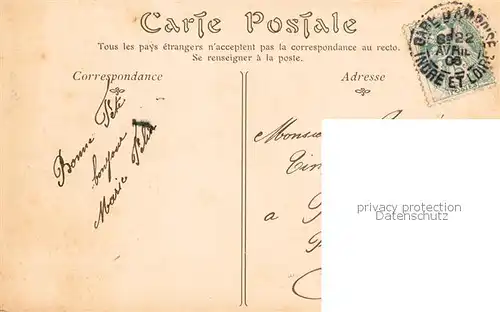 Carte Postale
Tous les pays étrangers n'acceptent pas la correspondance au recto.
Se renseigner à la poste.
Correspondance
Adresse
Bonne Fête
bonjour
Marie
Monsieur
a
INDRE ET LOIRE
22
AVRIL
08
privacy protection
Datenschutz